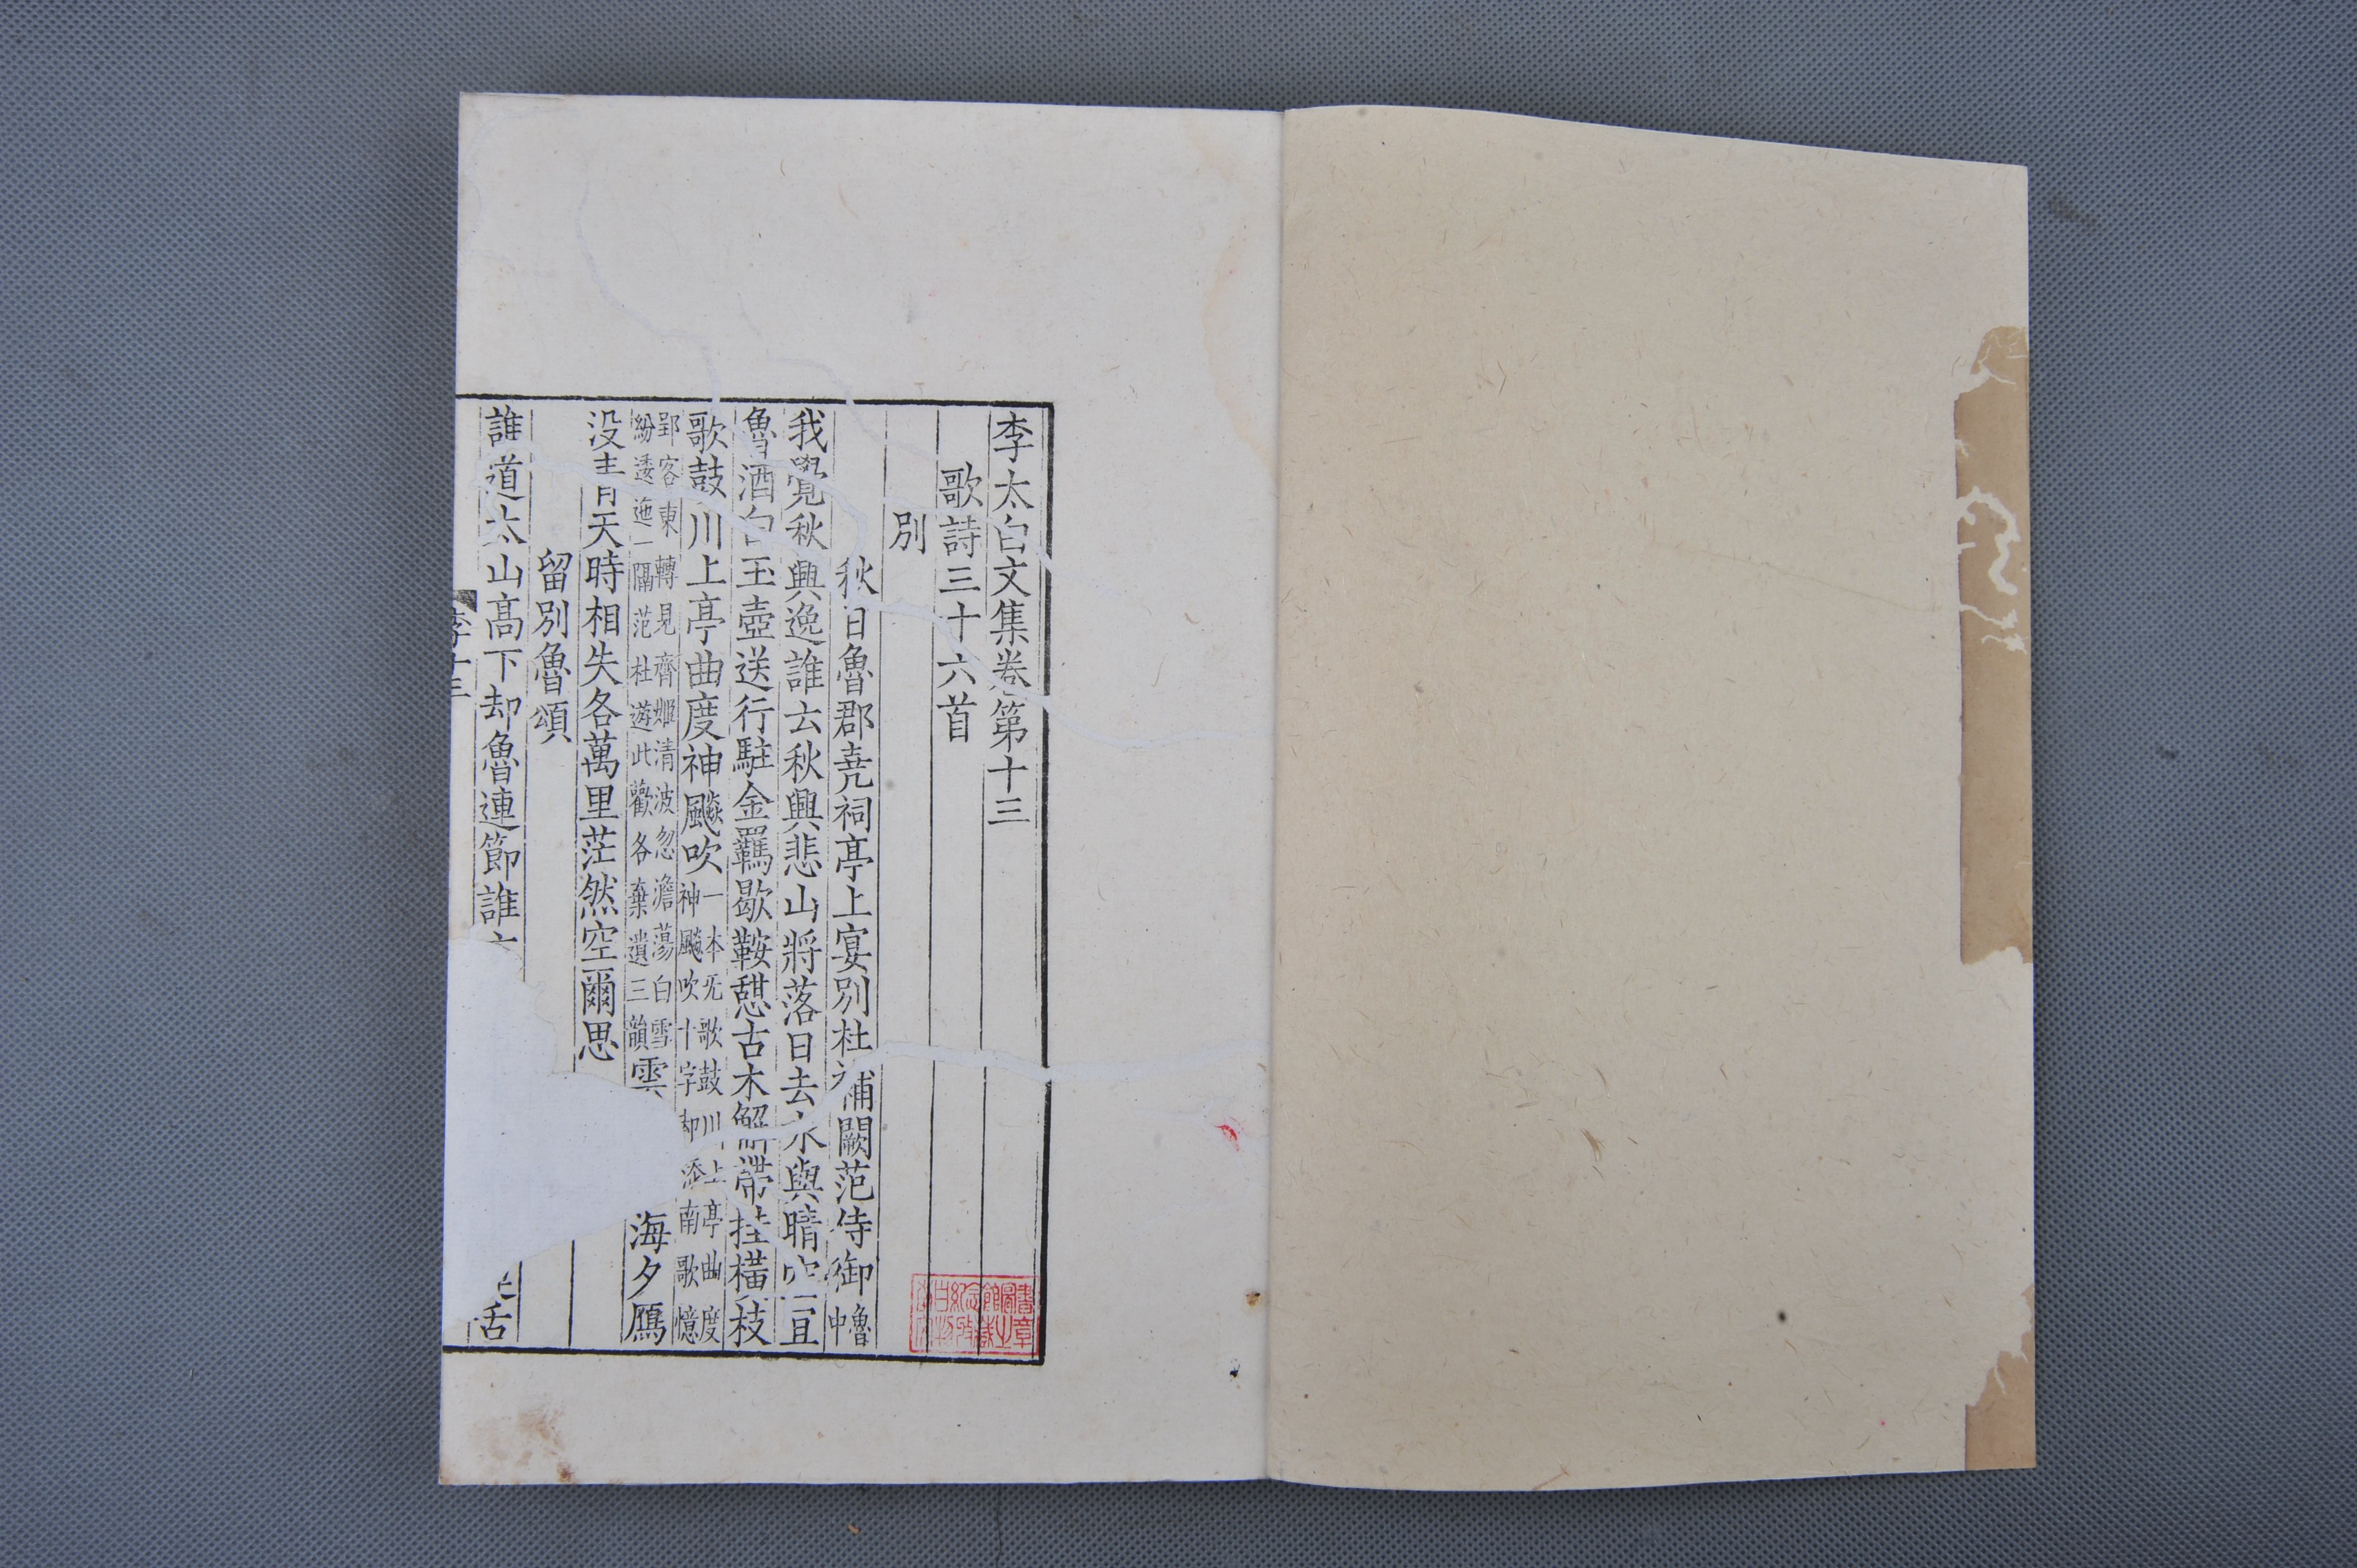 李太白文集卷第十三
歌詩三十六首
別
秋日魯郡堯祠亭上宴別杜補闕范侍御魯中
我覺秋興逸誰云秋興悲山將落日去水與晴空宜
魯酒白玉壺送行駐金羈歇鞍憩古木解帶挂橫枝
歌鼓川上亭曲度神飈吹一本无歌鼓川上亭曲度神飈吹十字却添南歌憶
郢客東轉見齊姬清波忽澹蕩白雪紛逶迤一隔范杜遊此歡各棄遺三韻雲海夕鴈
没青天時相失各萬里茫然空爾思
留別魯頌
誰道太山高下却魯連節誰舌
李十三
書圖館念紀白李
章之藏收物文